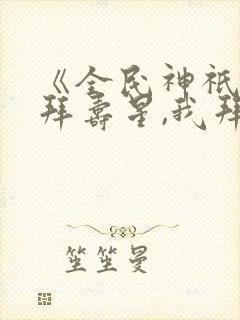 《全民神祇
拜寿星,我拜
笙笙曼